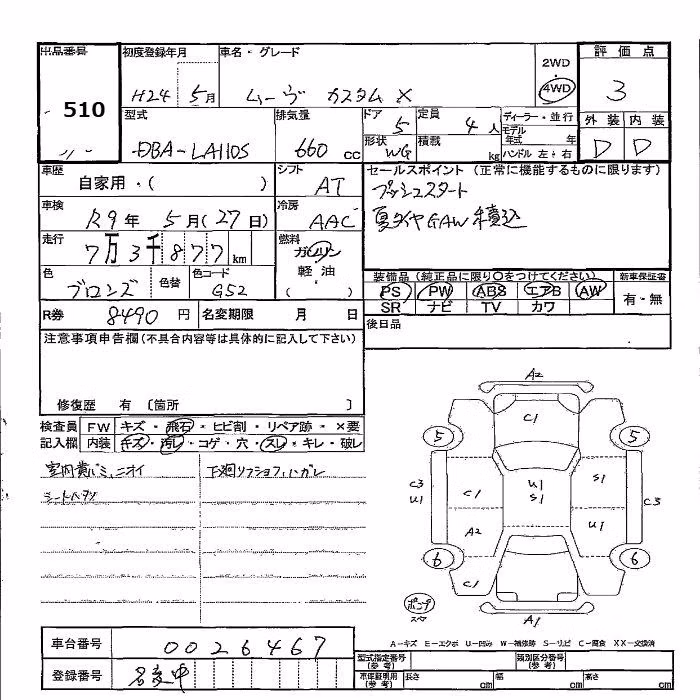 出品番号 510
初度登録年月 H24 5月
車名・グレード ムーヴ カスタム X
2WD
4WD
評価点 3
型式 DBA-LA110S
排気量 660 cc
ドア 5
定員 4人
形状 WG
積載 kg
ディーラー・並行
モデル年式 年
ハンドル 左・右
外装 内装
D D
車歴 自家用・( )
シフト AT
セールスポイント (正常に機能するものに限ります)
プッシュスタート
夏タイヤGAW積込
車検 R9年 5月(27日)
冷房 AAC
走行 7万3千877km
燃料 ガソリン
軽油
( )
色 ブロンズ
色替
色コード G52
装備品(純正品に限り○をつけてください)
PS PW ABS エアB AW
SR ナビ TV カワ
新車保証書
有・無
R券 8490円
名変期限 月 日
後日品
注意事項申告欄(不具合内容等は具体的に記入して下さい)
修復歴 有 〔箇所 〕
検査員記入欄
FW キズ・飛石・ヒビ割・リペア跡・×要
内装 キズ・汚レ・コゲ・穴・スレ・キレ・破レ
下廻リフショク,ハガレ
A2
C1
5 5
C3
U1
C1
U1
S1
S1
C3
A2
U1
6 6
C1
A1
A-キズ E-エクボ U-凹み W-補修跡 S-サビ C-腐食 XX-交換済
車台番号 0026467
登録番号 名変中
型式指定番号(参考)
類別区分番号(参考)
車庫証明用(参考) 長さ cm 幅 cm 高さ cm